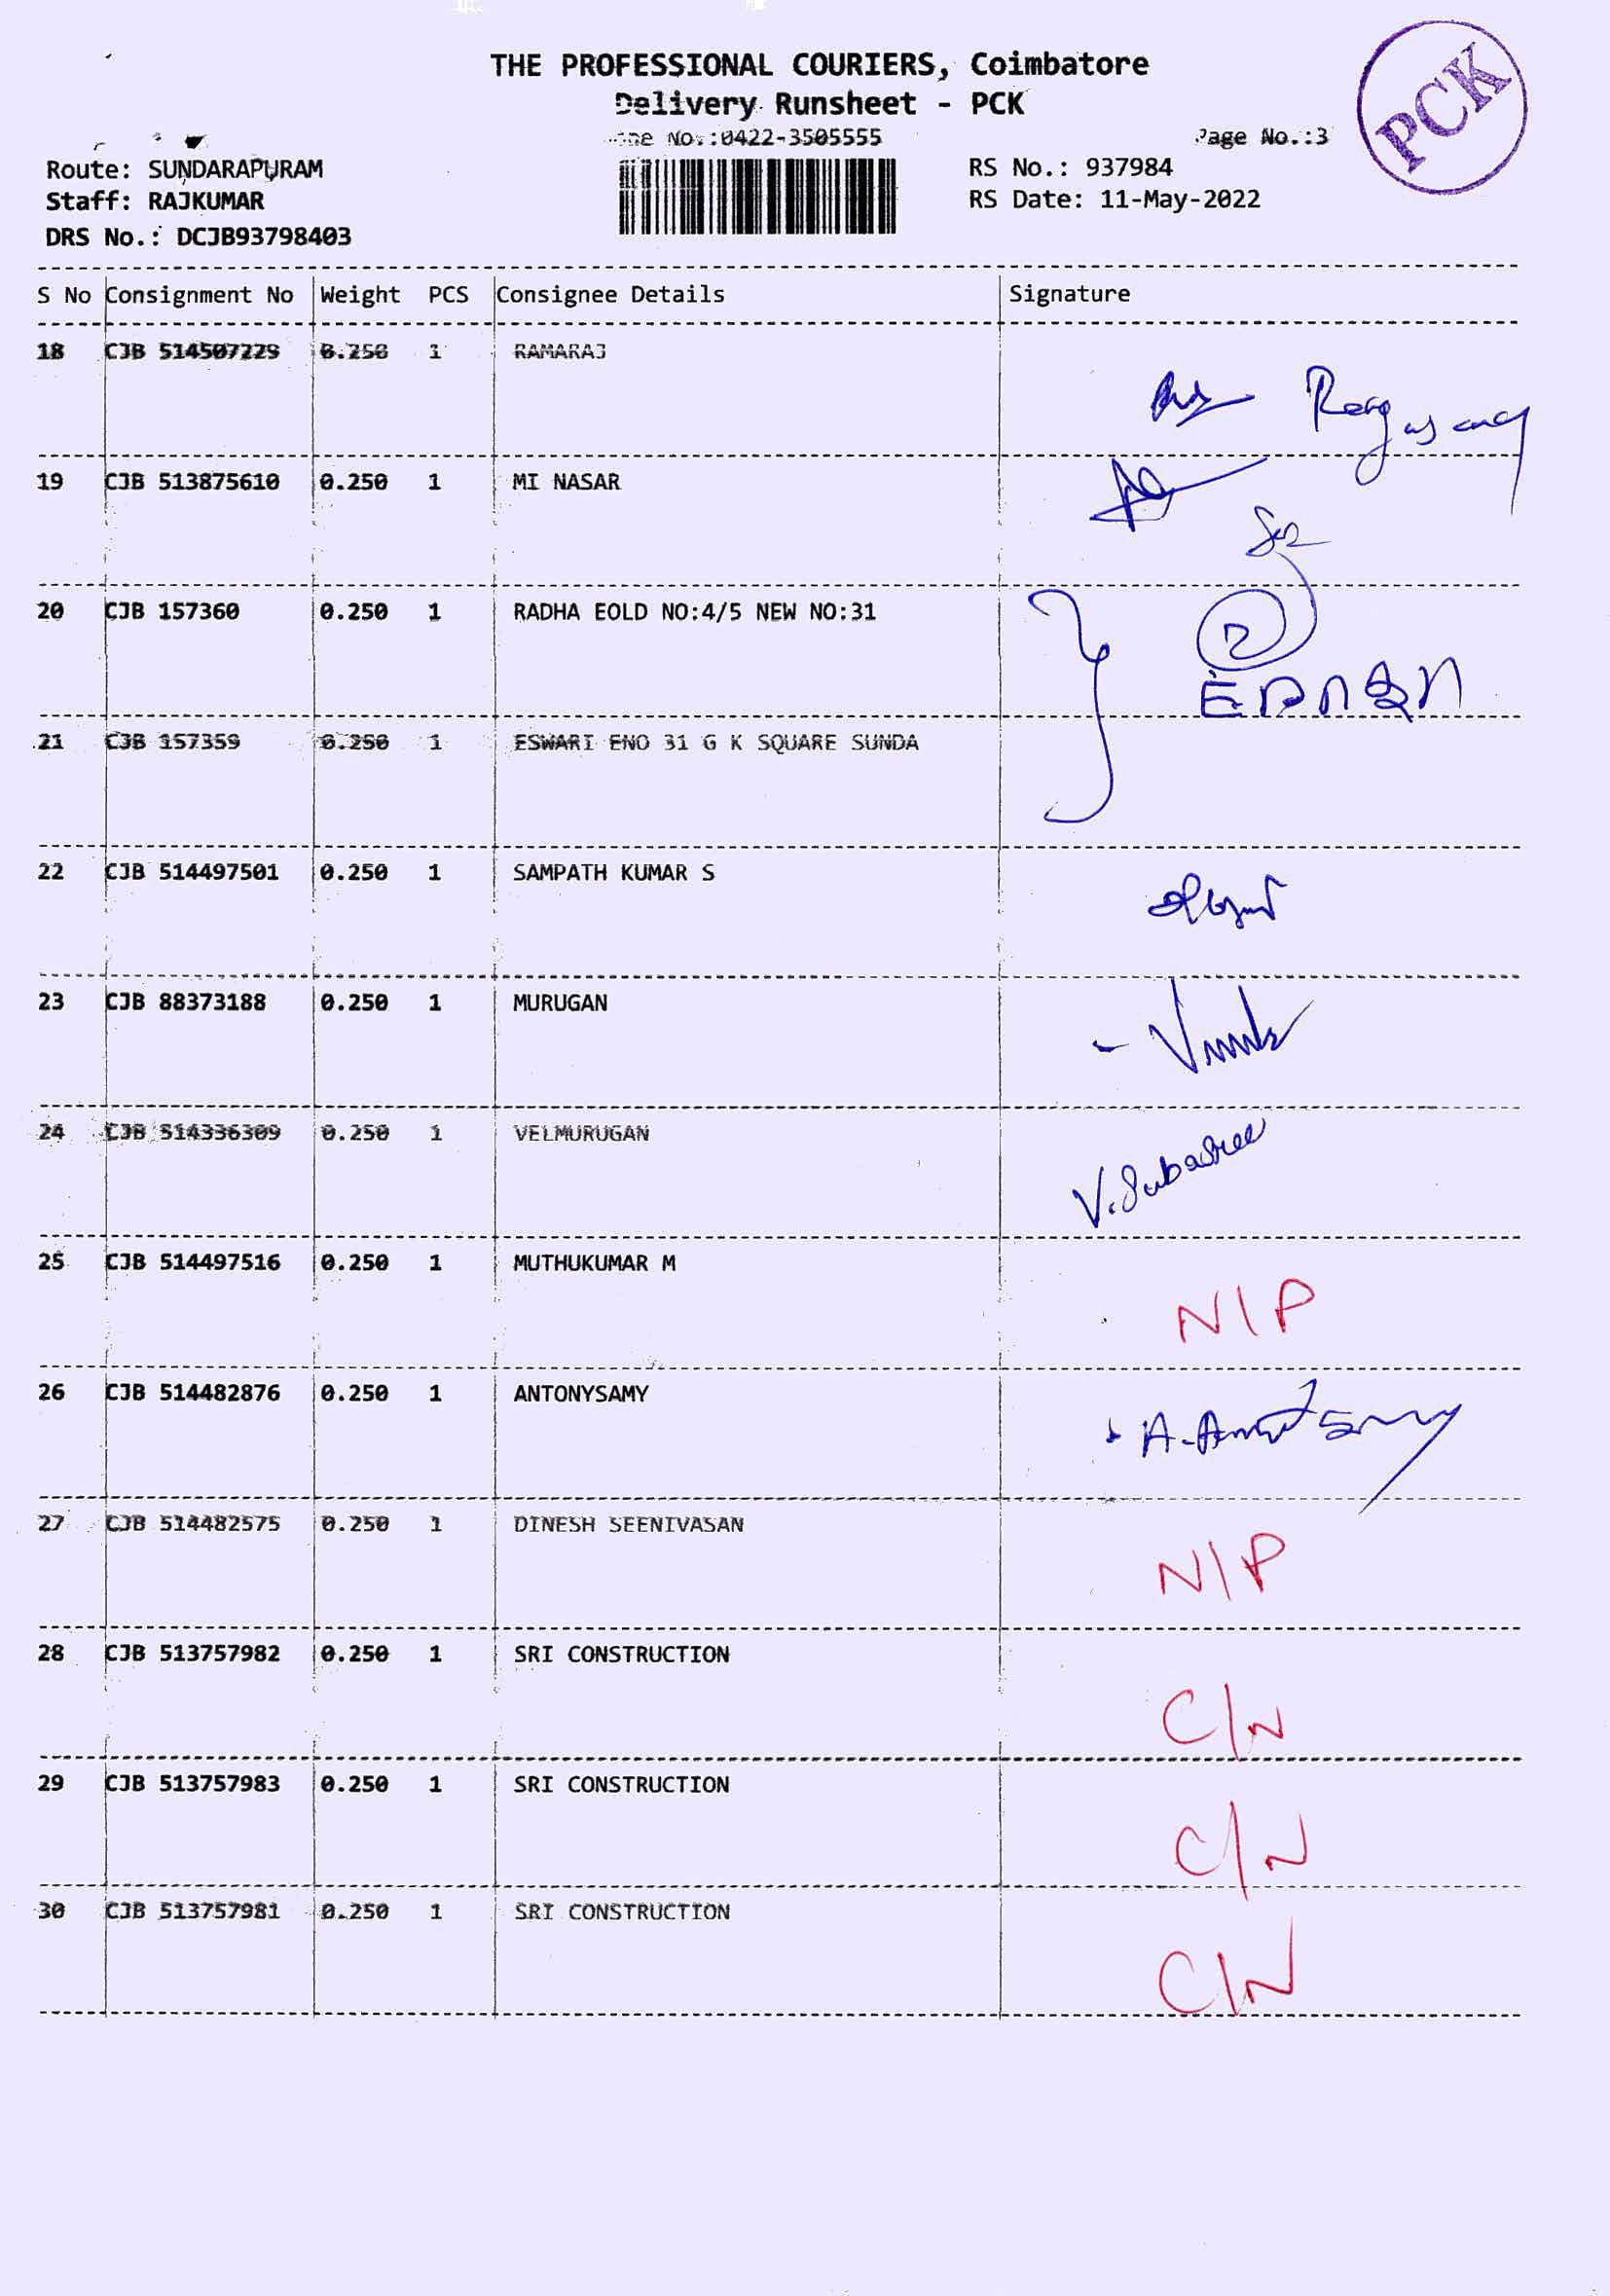 THE PROFESSIONAL COURIERS, Coimbatore
Delivery Runsheet - PCK
No.:0422-3505555
Page No.:3
PCK
Route: SUNDARAPURAM
RS No.: 937984
Staff: RAJKUMAR
RS Date: 11-May-2022
DRS No.: DCJB93798403
S No Consignment No Weight PCS Consignee Details Signature
18 CJB 514507229 0.250 1 RAMARAJ
19 CJB 513875610 0.250 1 MI NASAR
20 CJB 157360 0.250 1 RADHA EOLD NO:4/5 NEW NO:31
2
21 CJB 157359 0.250 1 ESWARI ENO 31 G K SQUARE SUNDA
22 CJB 514497501 0.250 1 SAMPATH KUMAR S
23 CJB 88373188 0.250 1 MURUGAN
24 CJB 514336309 0.250 1 VELMURUGAN
V. Subashree
25 CJB 514497516 0.250 1 MUTHUKUMAR M
N/P
26 CJB 514482876 0.250 1 ANTONYSAMY
27 CJB 514482575 0.250 1 DINESH SEENIVASAN
N/P
28 CJB 513757982 0.250 1 SRI CONSTRUCTION
C/N
29 CJB 513757983 0.250 1 SRI CONSTRUCTION
C/N
30 CJB 513757981 0.250 1 SRI CONSTRUCTION
C/N